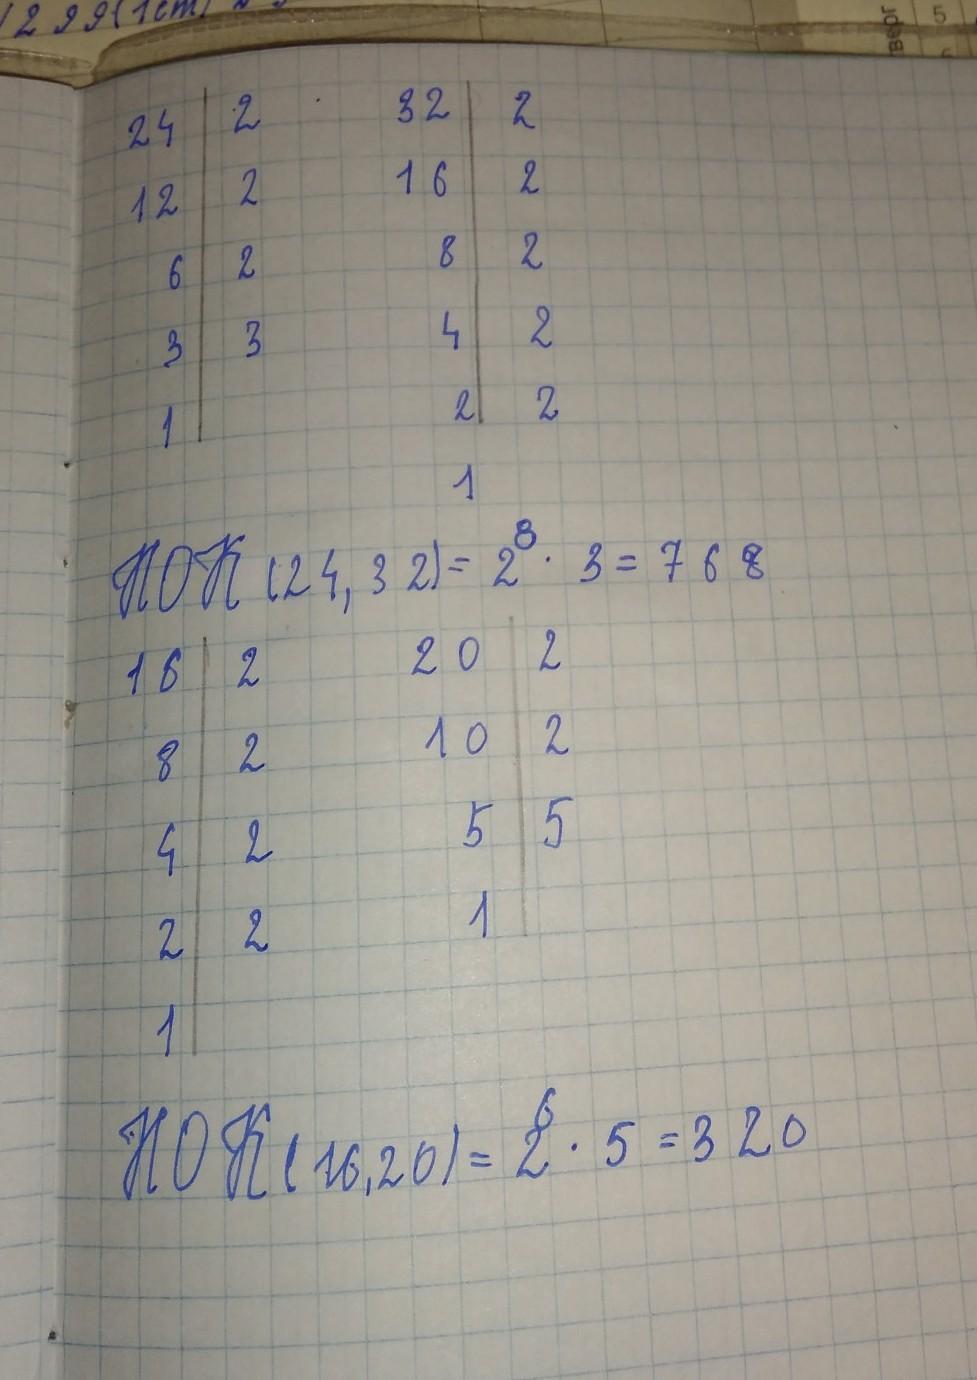 299(1ст)
верг 5
24 2 32 2
12 2 16 2
6 2 8 2
3 3 4 2
1 2 2
1
НОК(24,32)=2⁸·3=768
16 2 20 2
8 2 10 2
4 2 5 5
2 2 1
1
НОК(16,20)=2⁶·5=320